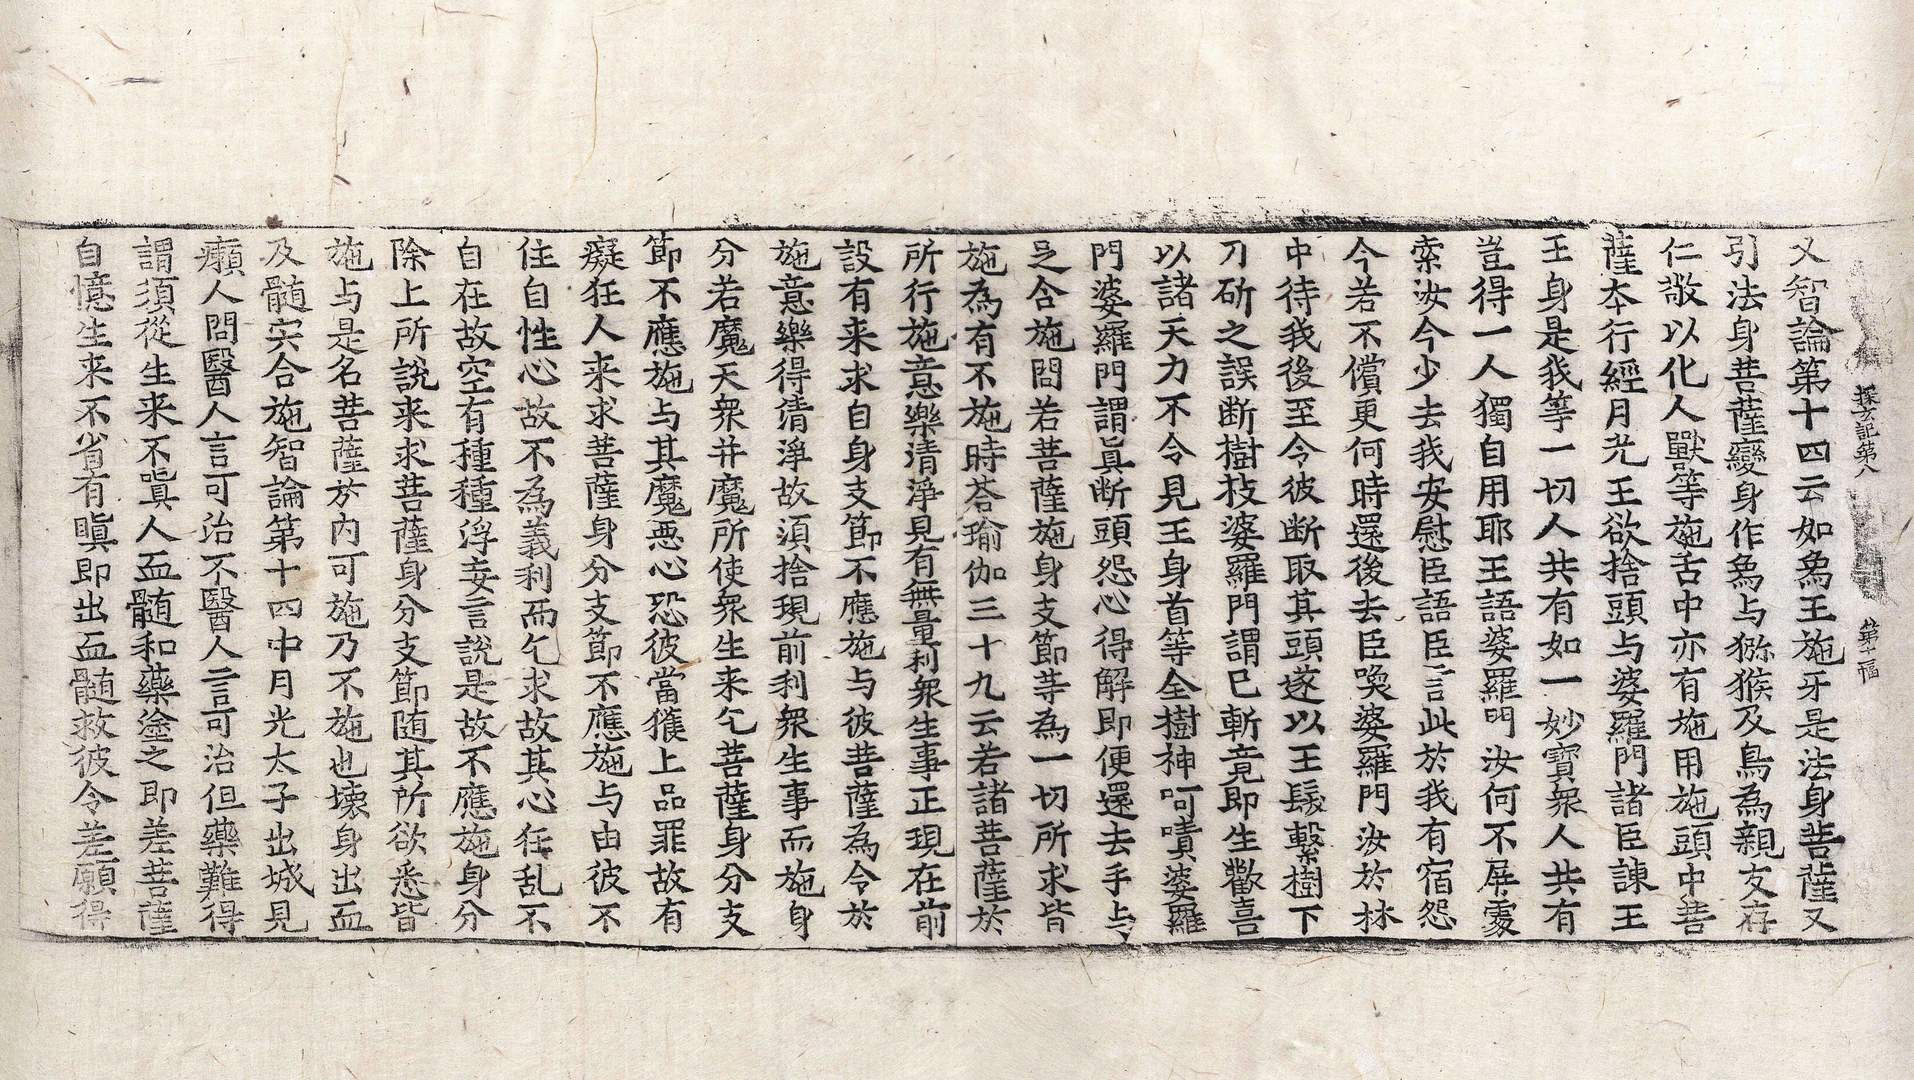 探玄記第八 第十一幅
又智論第十四云如象王施牙是法身菩薩又
引法身菩薩變身作象与猕猴及鳥為親友存
仁敬以化人獸等施舌中亦有施用施頭中菩
薩本行經月光王欲捨頭与婆羅門諸臣諫王
王身是我等一切人共有如一妙寶衆人共有
豈得一人獨自用耶王語婆羅門汝何不屏處
索汝今少去我安慰臣語臣言此於我有宿怨
今若不償更何時還後去臣喚婆羅門汝於林
中待我後至令彼断取其頭遂以王髮繫樹下
刀斫之誤断樹枝婆羅門謂已斬竟即生歡喜
以諸天力不令見王身首等全樹神呵嘖婆羅
門婆羅門謂真断頭怨心得解即便還去手与
足合施問若菩薩施身支節等為一切所求皆
施為有不施時荅瑜伽三十九云若諸菩薩於
所行施意樂清淨見有無量利衆生事正現在前
設有来求自身支節不應施与彼菩薩為令於
施意樂得清淨故須捨現前利衆生事而施身
分若魔天衆并魔所使衆生来乞菩薩身分支
節不應施与其魔悪心恐彼當獲上品罪故有
癡狂人来求菩薩身分支節不應施与由彼不
住自性心故不為義利而乞求故其心狂乱不
自在故空有種種浮妄言說是故不應施身分
除上所說来求菩薩身分支節随其所欲悉皆
施与是名菩薩於内可施乃不施也壊身出血
及髄宍合施智論第十四中月光太子出城見
癩人問醫人言可治不醫人言可治但藥難得
謂須從生来不嗔人血髄和藥塗之即差菩薩
自憶生来不省有瞋即出血髄救彼令差願得